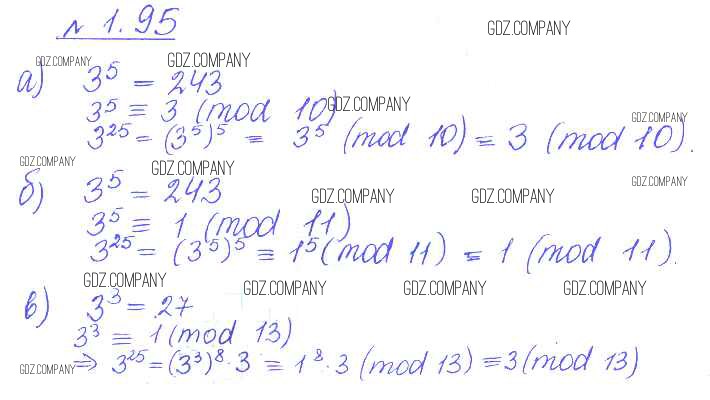 № 1.95
GDZ.COMPANY
GDZ.COMPANY GDZ.COMPANY
а) 3⁵ = 243
3⁵ ≡ 3 (mod 10) GDZ.COMPANY
GDZ.COMPANY
3²⁵ = (3⁵)⁵ ≡ 3⁵ (mod 10) ≡ 3 (mod 10).
GDZ.COMPANY GDZ.COMPANY GDZ.COMPANY
б) 3⁵ = 243
GDZ.COMPANY GDZ.COMPANY
3⁵ ≡ 1 (mod 11)
3²⁵ = (3⁵)⁵ ≡ 1⁵ (mod 11) ≡ 1 (mod 11).
GDZ.COMPANY GDZ.COMPANY GDZ.COMPANY GDZ.COMPANY
в) 3³ = 27
3³ ≡ 1 (mod 13)
GDZ.COMPANY ⇒ 3²⁵ = (3³)⁸ · 3 ≡ 1⁸ · 3 (mod 13) ≡ 3 (mod 13)